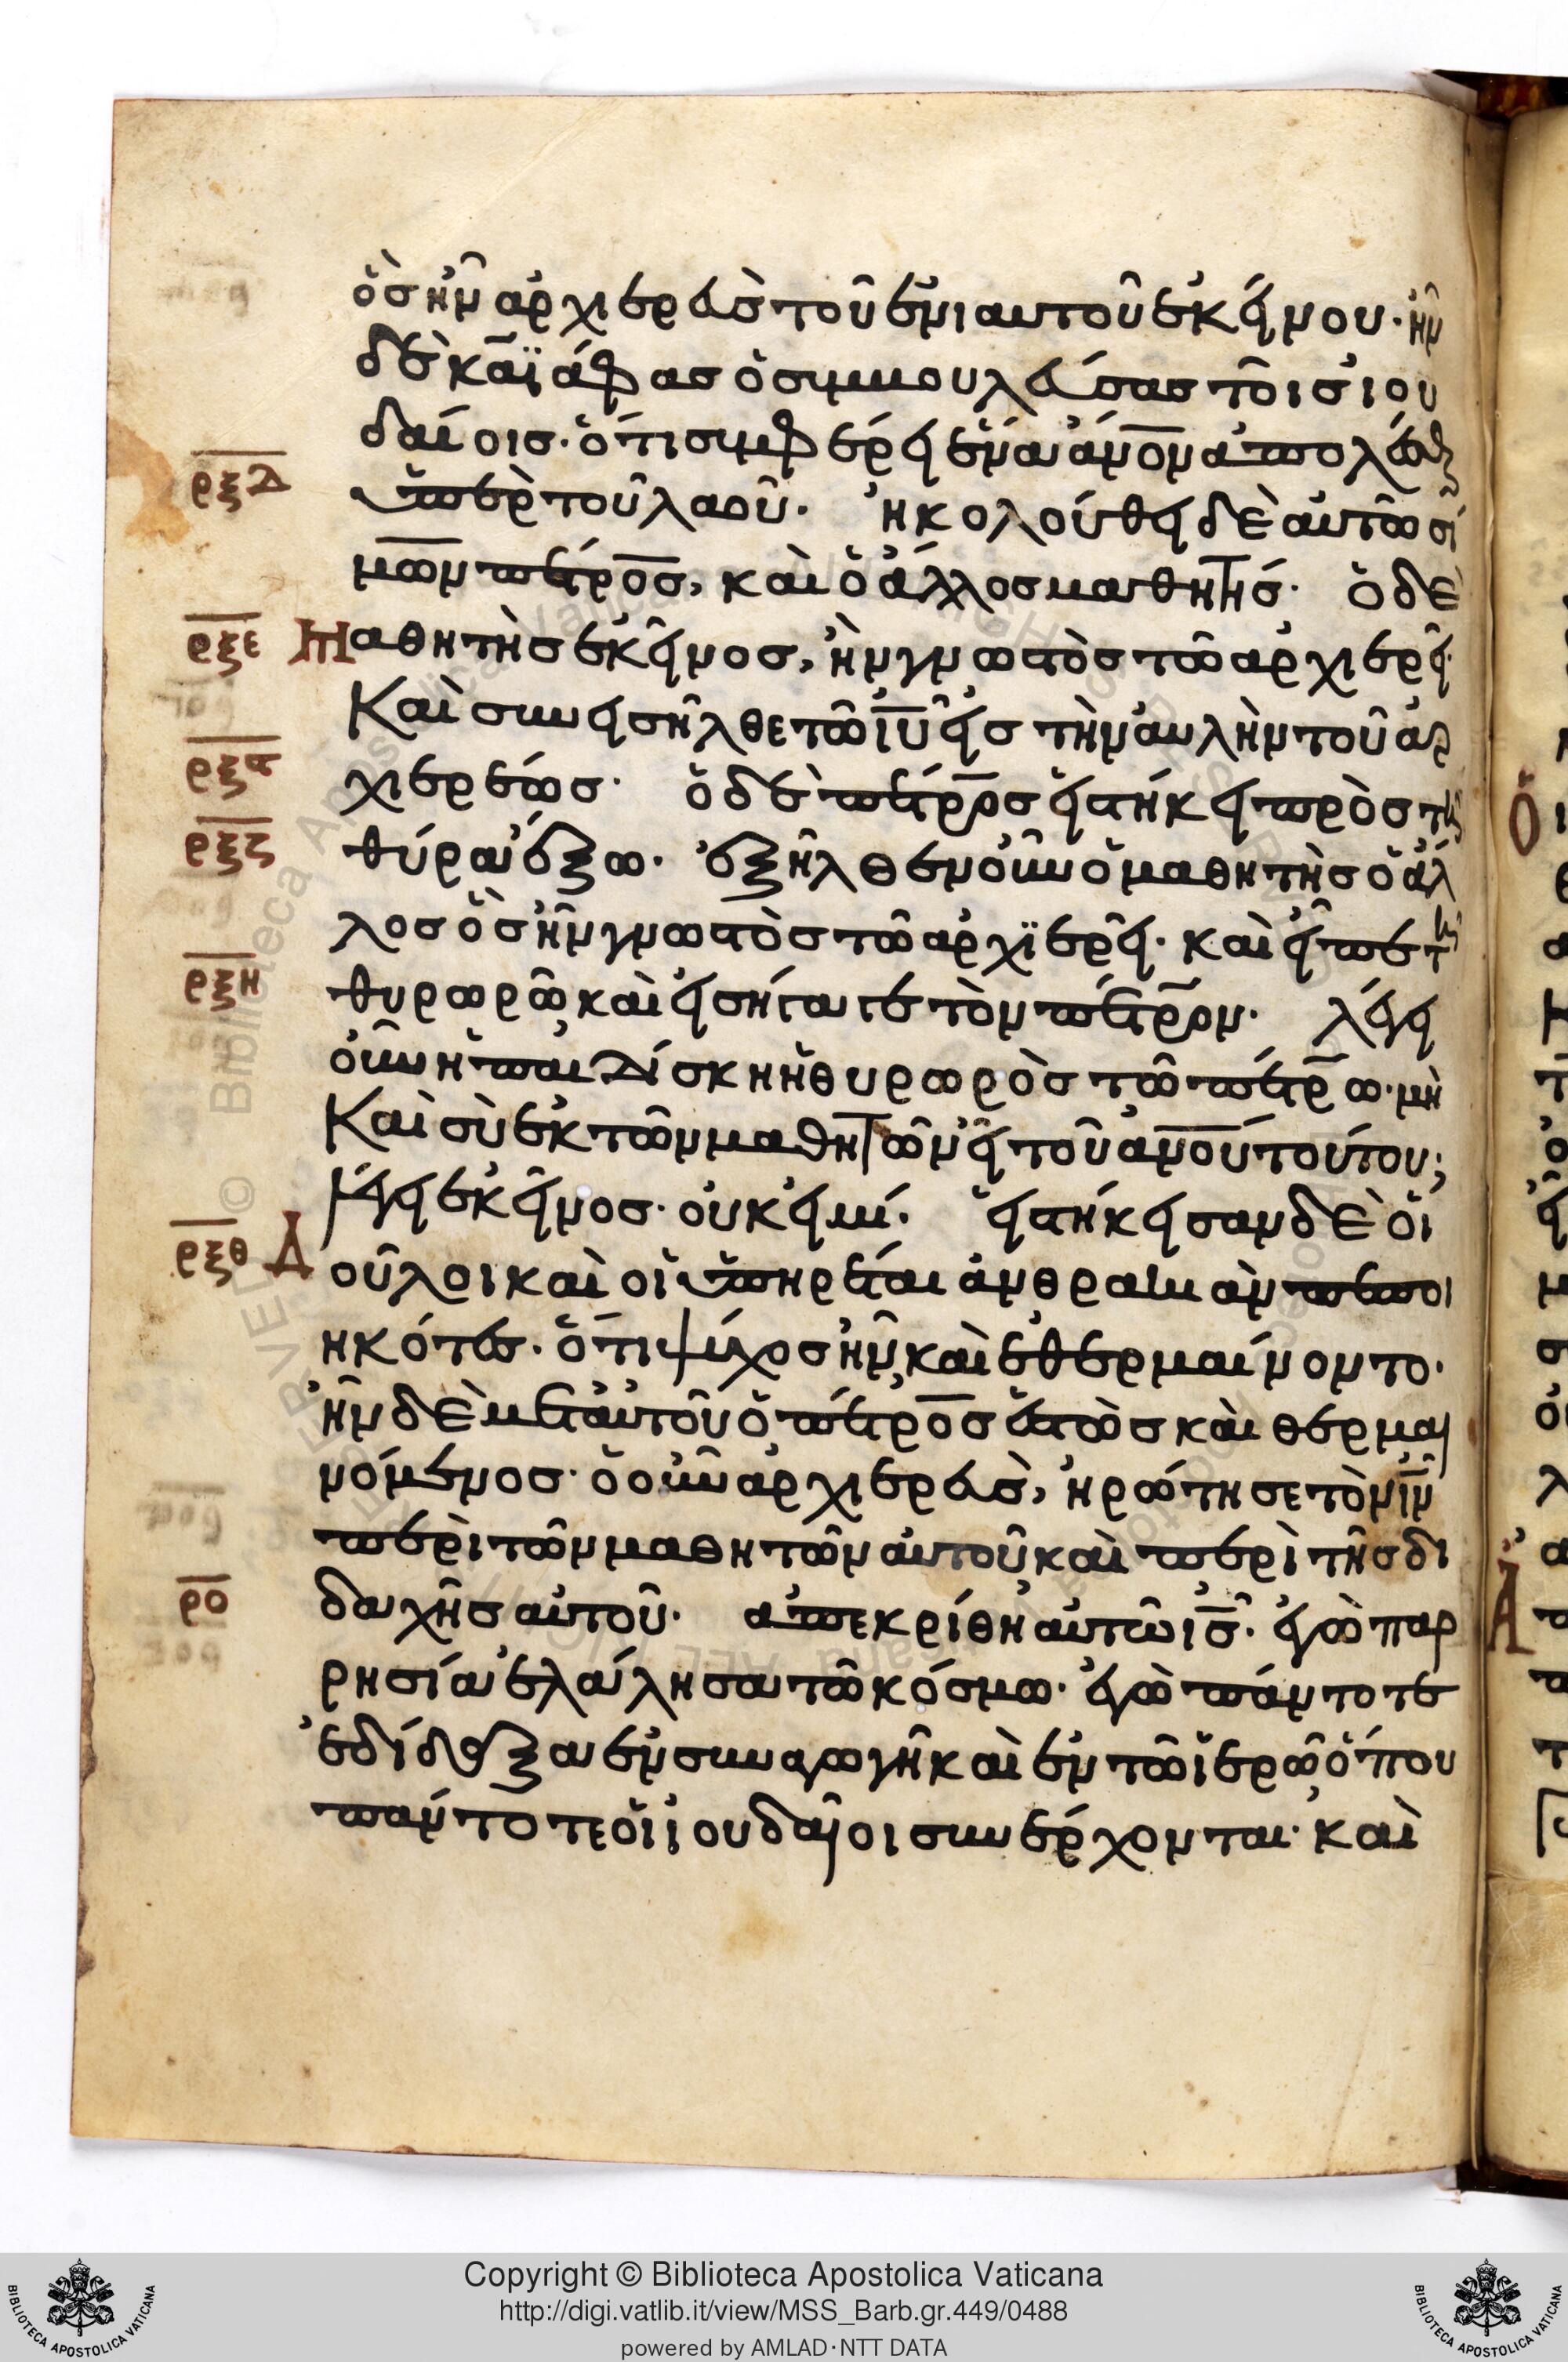 ὃς ἦν ἀρχιερεὺς τοῦ ἐνιαυτοῦ ἐκείνου. ἦν
δὲ καϊάφας ὁ συμβουλεύσας τοῖς ἰου
δαίοις. ὅτι συμφέρει ἕνα ἄνον ἀπολέσθαι
ρξδ ὑπὲρ τοῦ λαοῦ. ἠκολούθει δὲ αὐτῶ σί
μων πέτρος, καὶ ὁ ἄλλος μαθητής. ὁ δὲ
ρξε μαθητὴς ἐκεῖνος, ἦν γνωστὸς τῶ ἀρχιερεῖ.
Καὶ συνεισῆλθε τῶ ἰυ εἰς τὴν αὐλὴν τοῦ ἀρ
ρξϛ χιερέως. ὁ δὲ πέτρος εἱστήκει πρὸς τῆ
ρξζ θύρα ἔξω. ἐξῆλθεν οὖν ὁ μαθητὴς ὁ ἄλ
λος ὃς ἦν γνωστὸς τῶ ἀρχϊερεῖ. καὶ εἶπε τῆ
ρξη θυρωρῶ καὶ εἰσήγαγε τὸν πέτρον. λέγει
οὖν ἡ παιδίσκη ἡ θυρωρὸς τῶ πέτρω. μὴ
Καὶ σὺ ἐκ τῶν μαθητῶν εἶ τοῦ ἀνου τούτου;
λέγει ἐκεῖνος. οὐκ εἰμί. εἱστήκεισαν δὲ οἱ
ρξθ Δοῦλοι καὶ οἱ ὑπηρέται ἀνθρακιὰν πεποι
ηκότες. ὅτι ψύχος ἦν καὶ ἐθερμαίνοντο.
ἦν δὲ μετ αὐτοῦ ὁ πέτρος ἑστὼς καὶ θερμαι
νόμενος. ὁ οὖν ἀρχιερεὺς, ἠρώτησε τὸν ἰν
περὶ τῶν μαθητῶν αὐτοῦ καὶ περὶ τῆς δι
ρο δαχῆς αὐτοῦ. ἀπεκρίθη αὐτῶ ἰς. ἐγὼ παρ
ρησία ἐλάλησα τῶ κόσμω. ἐγὼ πάντοτε
ἐδίδαξα ἐν συναγωγῆ καὶ ἐν τῶ ἱερῶ ὅπου
πάντοτε οἱ ἰουδαῖοι συνέρχονται. καὶ
Copyright © Biblioteca Apostolica Vaticana
http://digi.vatlib.it/view/MSS_Barb.gr.449/0488
powered by AMLAD·NTT DATA